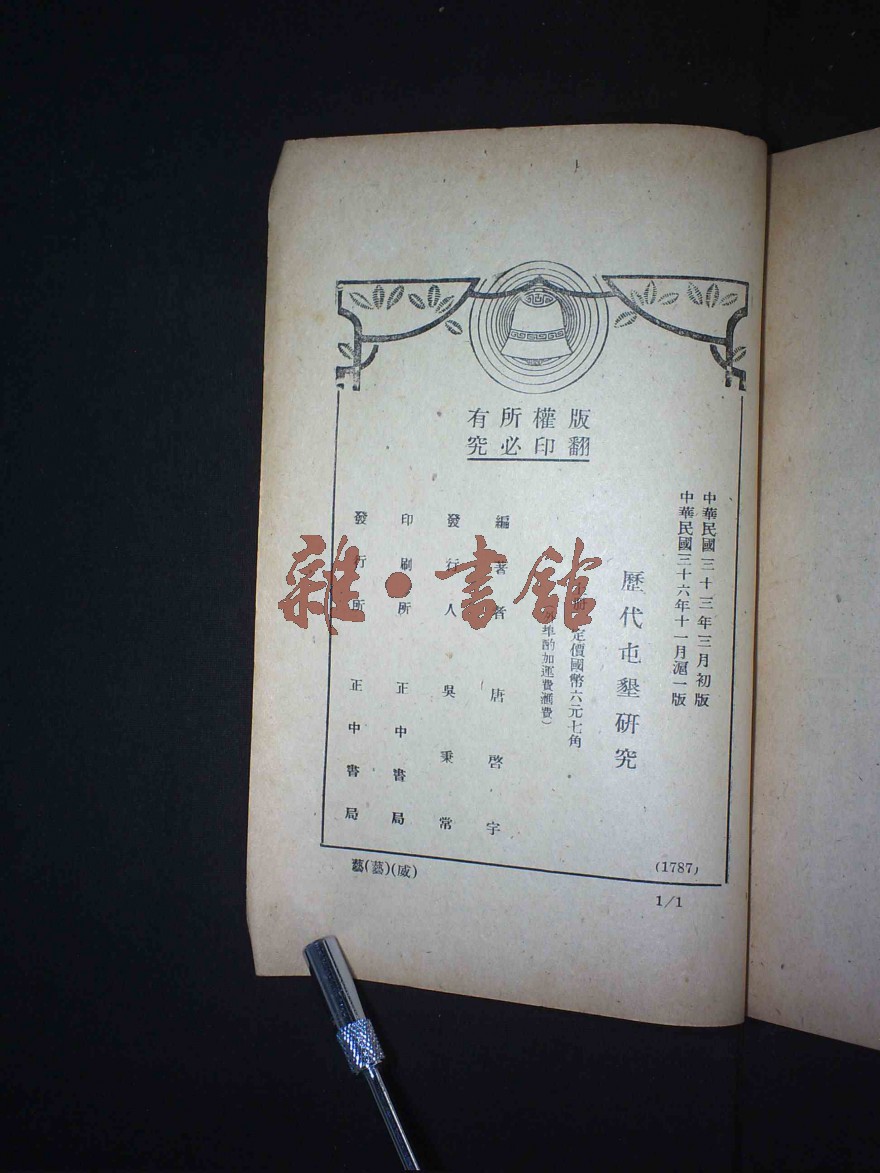 版權所有
翻印必究
中華民國三十三年三月初版
中華民國三十六年十一月滬一版
歷代屯墾研究
定價國幣六元七角
埠酌加運費滙費）
編著者 唐啓宇
發行人 吳秉常
印刷所 正中書局
發行所 正中書局
(1787)
藝(藝)(威)
1/1
雜·書館